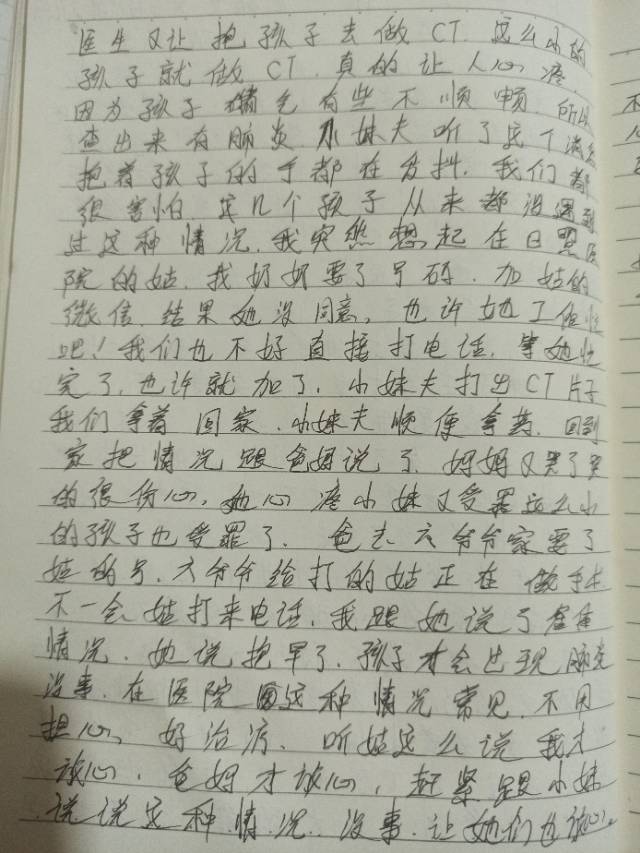 医生又让抱孩子去做CT.这么小的
孩子就做CT.真的让人心疼.
因为孩子精气有些不顺畅.所以
查出来有肺炎.小妹夫听了这个消息
抱着孩子的手都在发抖.我们都
很害怕.这几个孩子从来都没遇到
过这种情况.我突然想起在日照医
院的姑.我奶奶要了号码.加姑的
微信.结果她没同意,也许她工作忙
吧!我们也不好直接打电话.等她忙
完了.也许就加了.小妹夫打出CT片子
我们拿着回家.小妹夫顺便拿药.回到
家把情况跟爸妈说了.妈妈又哭了哭
的很伤心,她心疼小妹又受罪这么小
的孩子也受罪了.爸去六爷爷家要了
姑的号.六爷爷给打的姑正在做手术
不一会.姑打来电话.我跟她说了
情况.她说抱早了.孩子才会出现肺炎
没事.在医院这种情况常见.不用
担心,好治疗.听姑这么说我才
放心.爸妈才放心,赶紧跟小妹
说说这种情况.没事.让她们也放心。